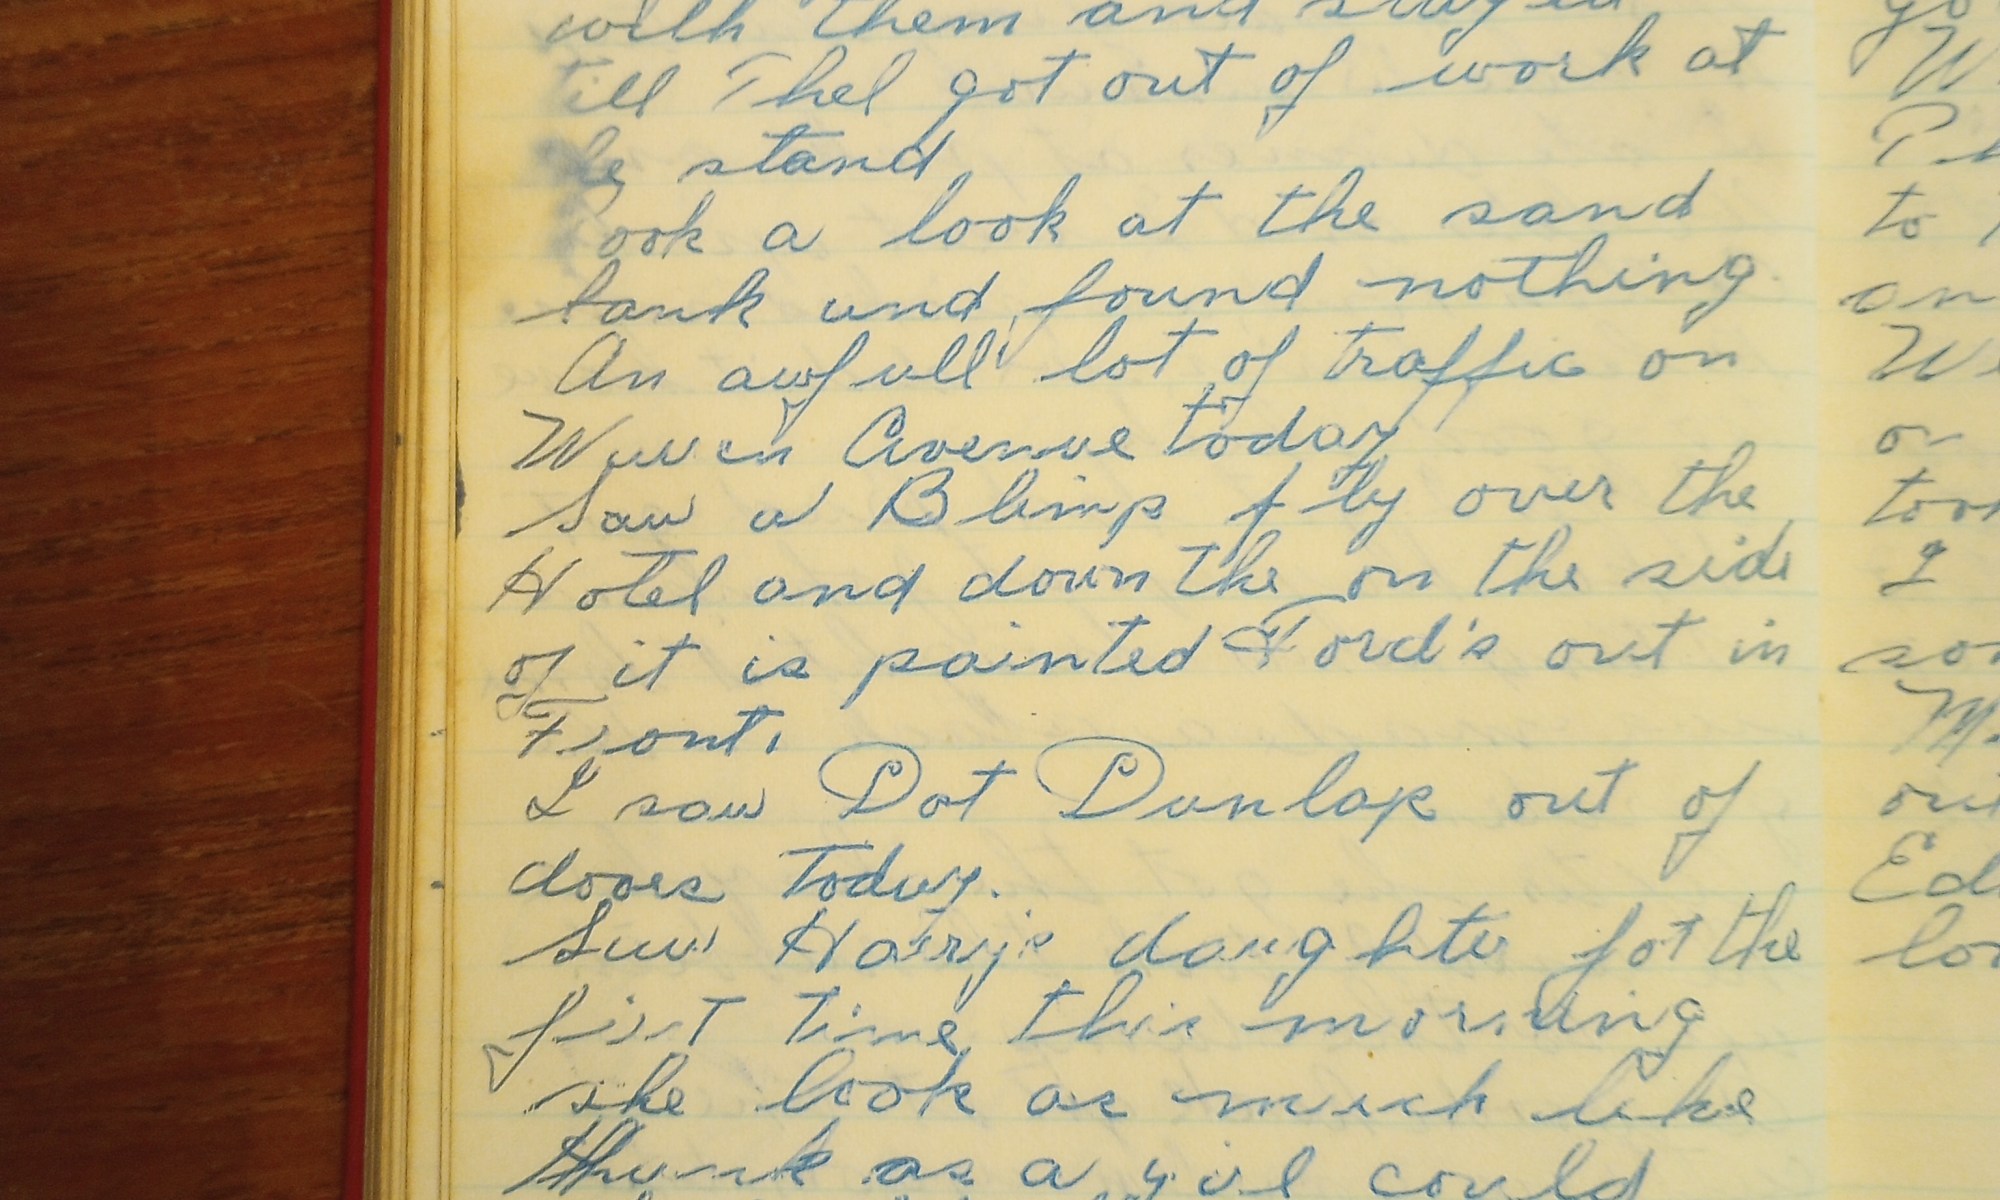 with them and stayed
till Thel got out of work at
stand
ook a look at the sand
bank and found nothing
An awfull lot of traffic on
Avenue today
Saw a Blimp fly over the
Hotel and down the on the side
of it is painted Ford's out in
Front.
I saw Dot Dunlap out of
doors today.
Saw Harry's daughter for the
first time this morning
she look as much like
as a girl could
go
W
to
an
We
or
too
I
so
M
out
Ed
lo